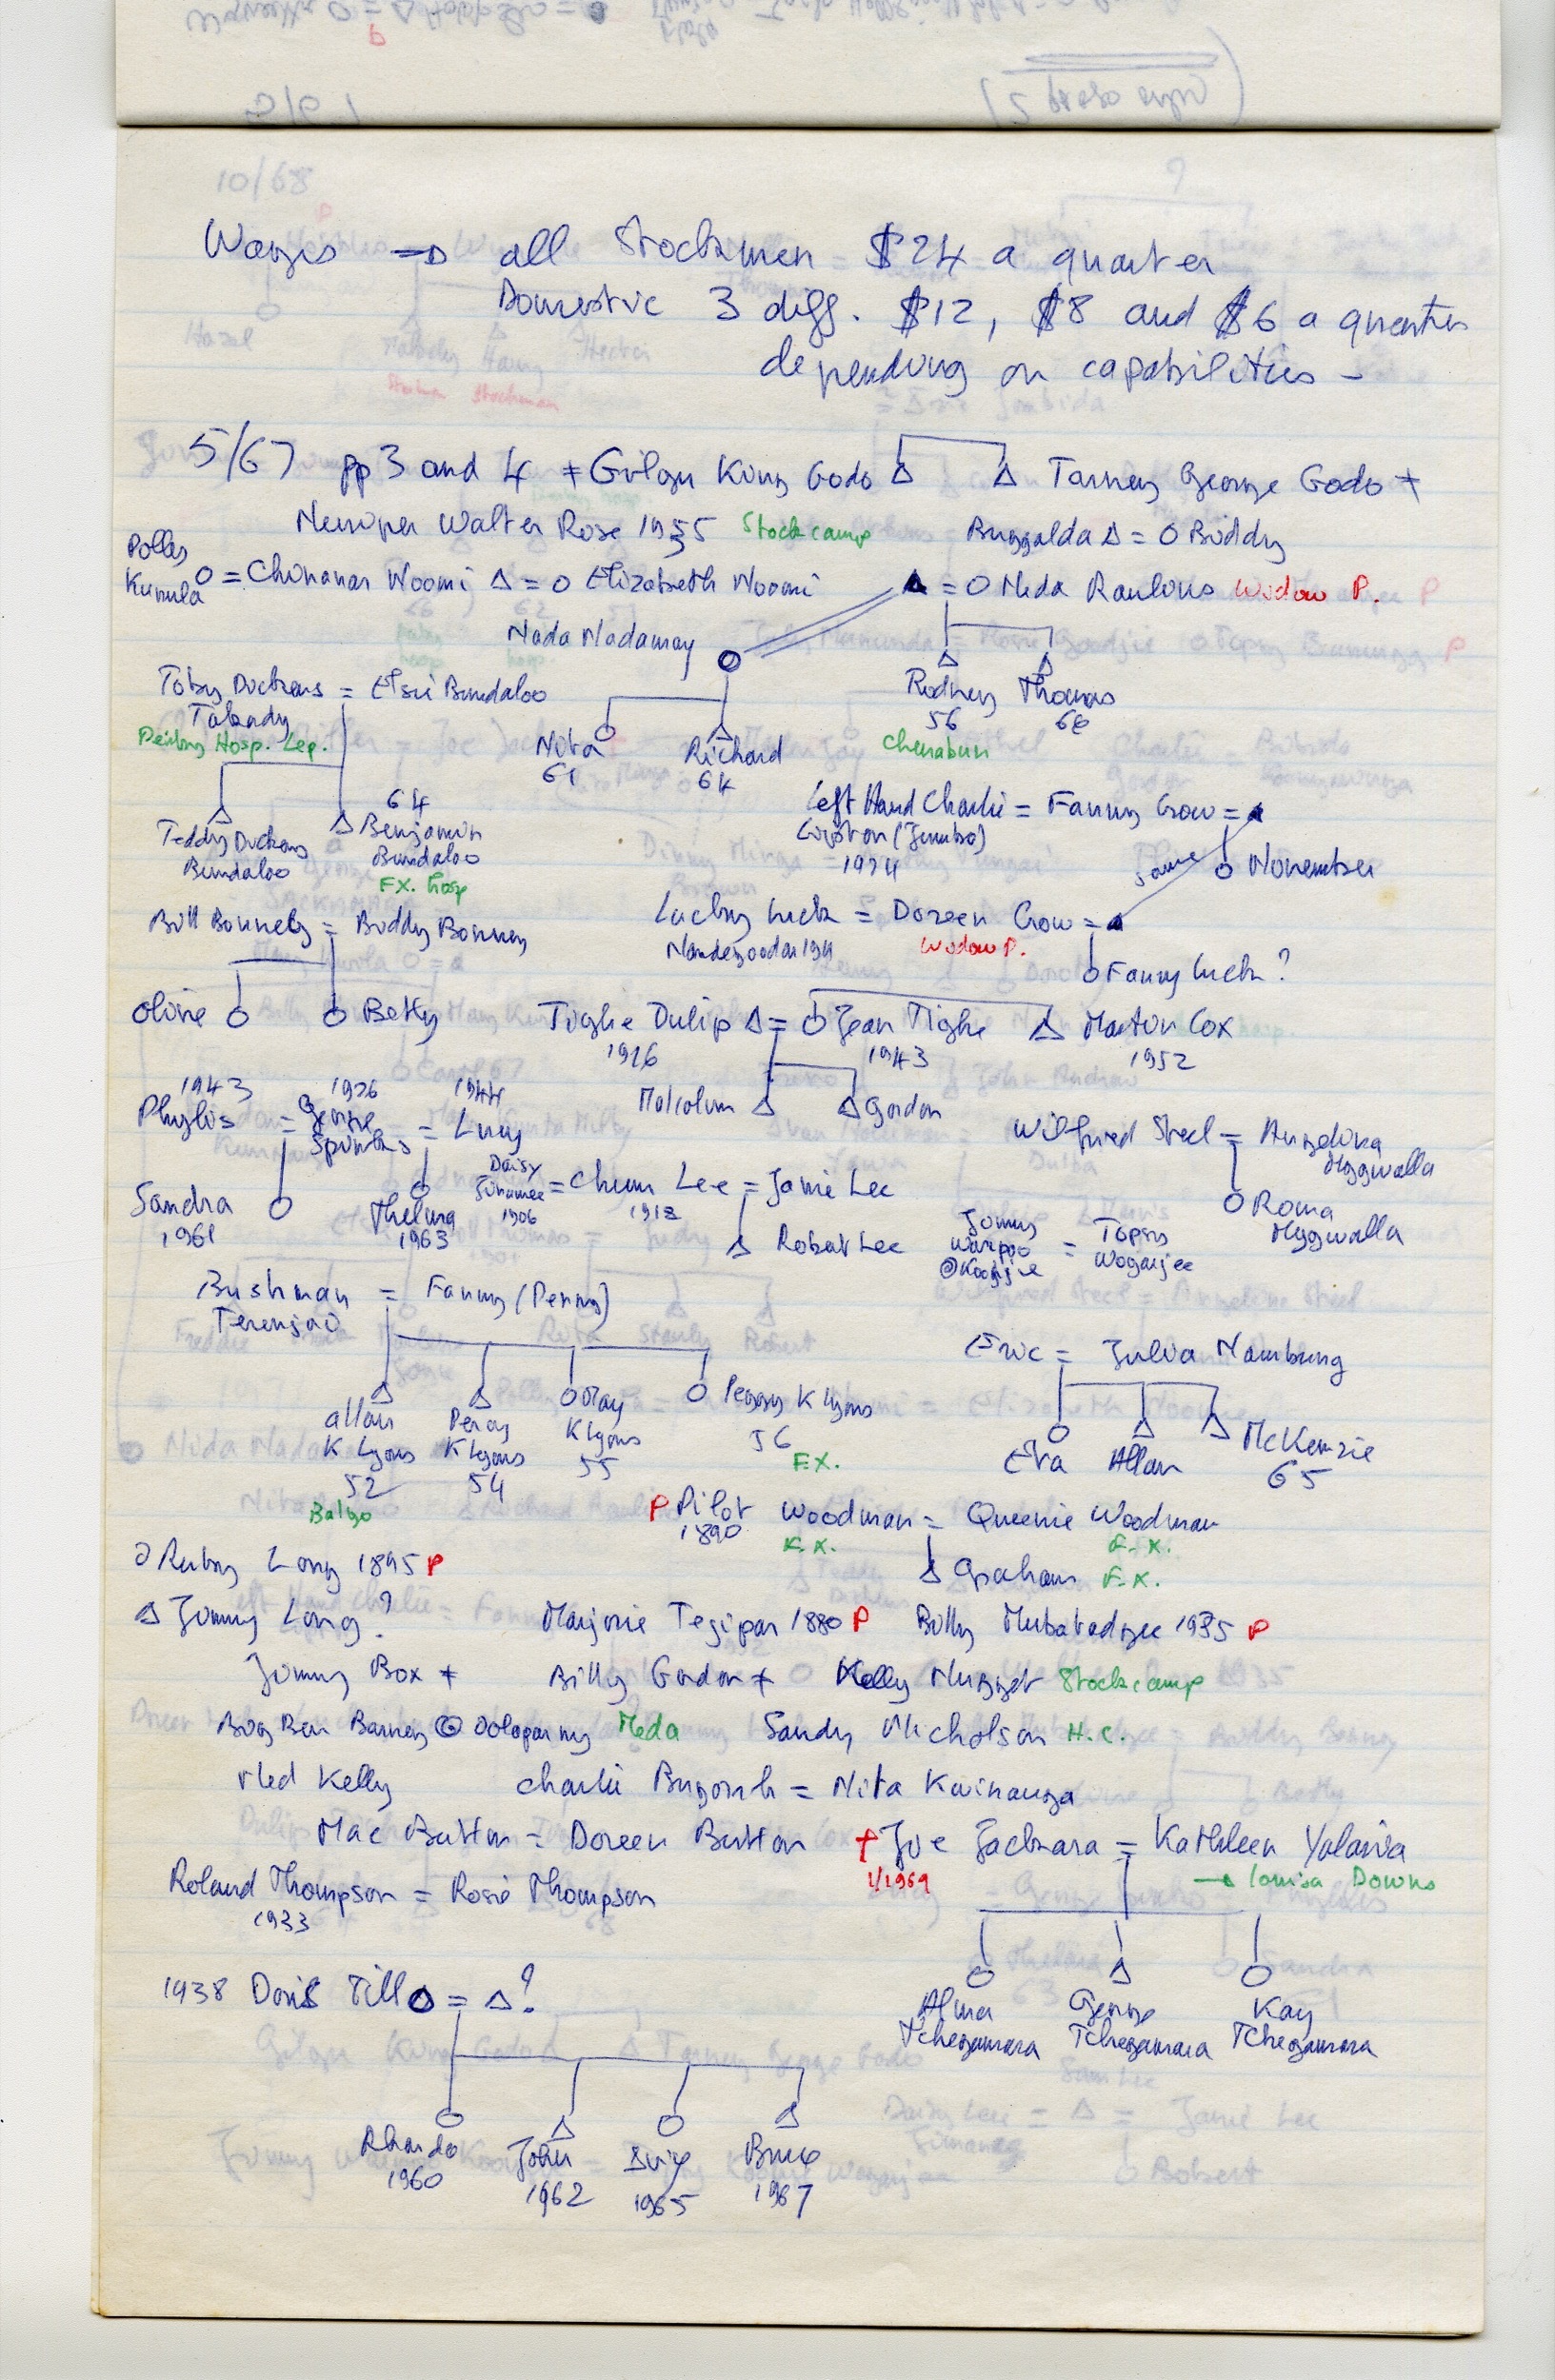 Wages → all Stockmen $24 a quarter
Domestic 3 diff. $12, $8 and $6 a quarter
depending on capabilities -
5/67 pp 3 and 4 + Gilgn King Godo △ △ Tarney George Godo +
Walter Rose 1955 Stock camp Buggalda △ = O Biddy
Polly
Kurula O = Chinanan Noomi △ = O Elizabeth Noomi ▲ = O Nida Raulins Widow P.
Nada Nadamay
Toby Dickens = Elsie Bundaloo Rodney Thomas
Takady 56 66
Derby Hosp. Lep. Nita Richard Cherabun
61 64
Left Hand Charlie = Fanny Crow = ▲
64 (Jumbo)
Teddy Dickens Benjamin 1924 same November
Bundaloo Bundaloo
FX. hosp
Bill Bonney = Biddy Bonney Lucky Luck = Doreen Crow = ▲
Widow P.
Fanny Luck?
Olive O O Betty Tighe Dulip △ = O Jean Tighe △ Martin Cox
1926 1943 1952
1943 1926 1944
Phylis = George = Lucy Malcolum △ △ Gordon
Spinks Wilfried Steel = Angelina
Myggwalla
Daisy
Jinamee = Chum Lee = Janie Lee
1906 1918
Sandra O Thelma O Roma
1961 1963 Myggwalla
△ Robert Lee Jimmy = Topsy
Waripoo Wogarjee
@Koogjie
Bushman = Fanny (Penny)
Terenjai
Eric = Julia Nambung
Allan Percy May Peggy K Lyons
K Lyons K Lyons K Lyons 56
52 54 55 F.X.
Balgo
Eva Allan McKenzie
65
P Pilot Woodman = Queenie Woodman
1890 F.X. F.X.
O Ruby Long 1895 P △ Graham F.X.
△ Jimmy Long? Marjorie Tegipan 1880 P Billy Mubabadgee 1935 P
Jimmy Box + Billy Gordon + Kelly Nugget Stock camp
Big Ben Barney @ Oolopanny Meda Sandy Nicholson H.C.
Ned Kelly Charlie Bugomb = Nita Kwinanga
Mac Button = Doreen Button † Joe Jacknara = Kathleen Yalawia
1/1969 → Louisa Downs
Roland Thompson = Rosie Thompson
1933
1938 Doris Till O = △?
Alma George Kay
Tchegamara Tchegamara Tchegamara
Rhanda John Bruce
1960 1962 1965 1967